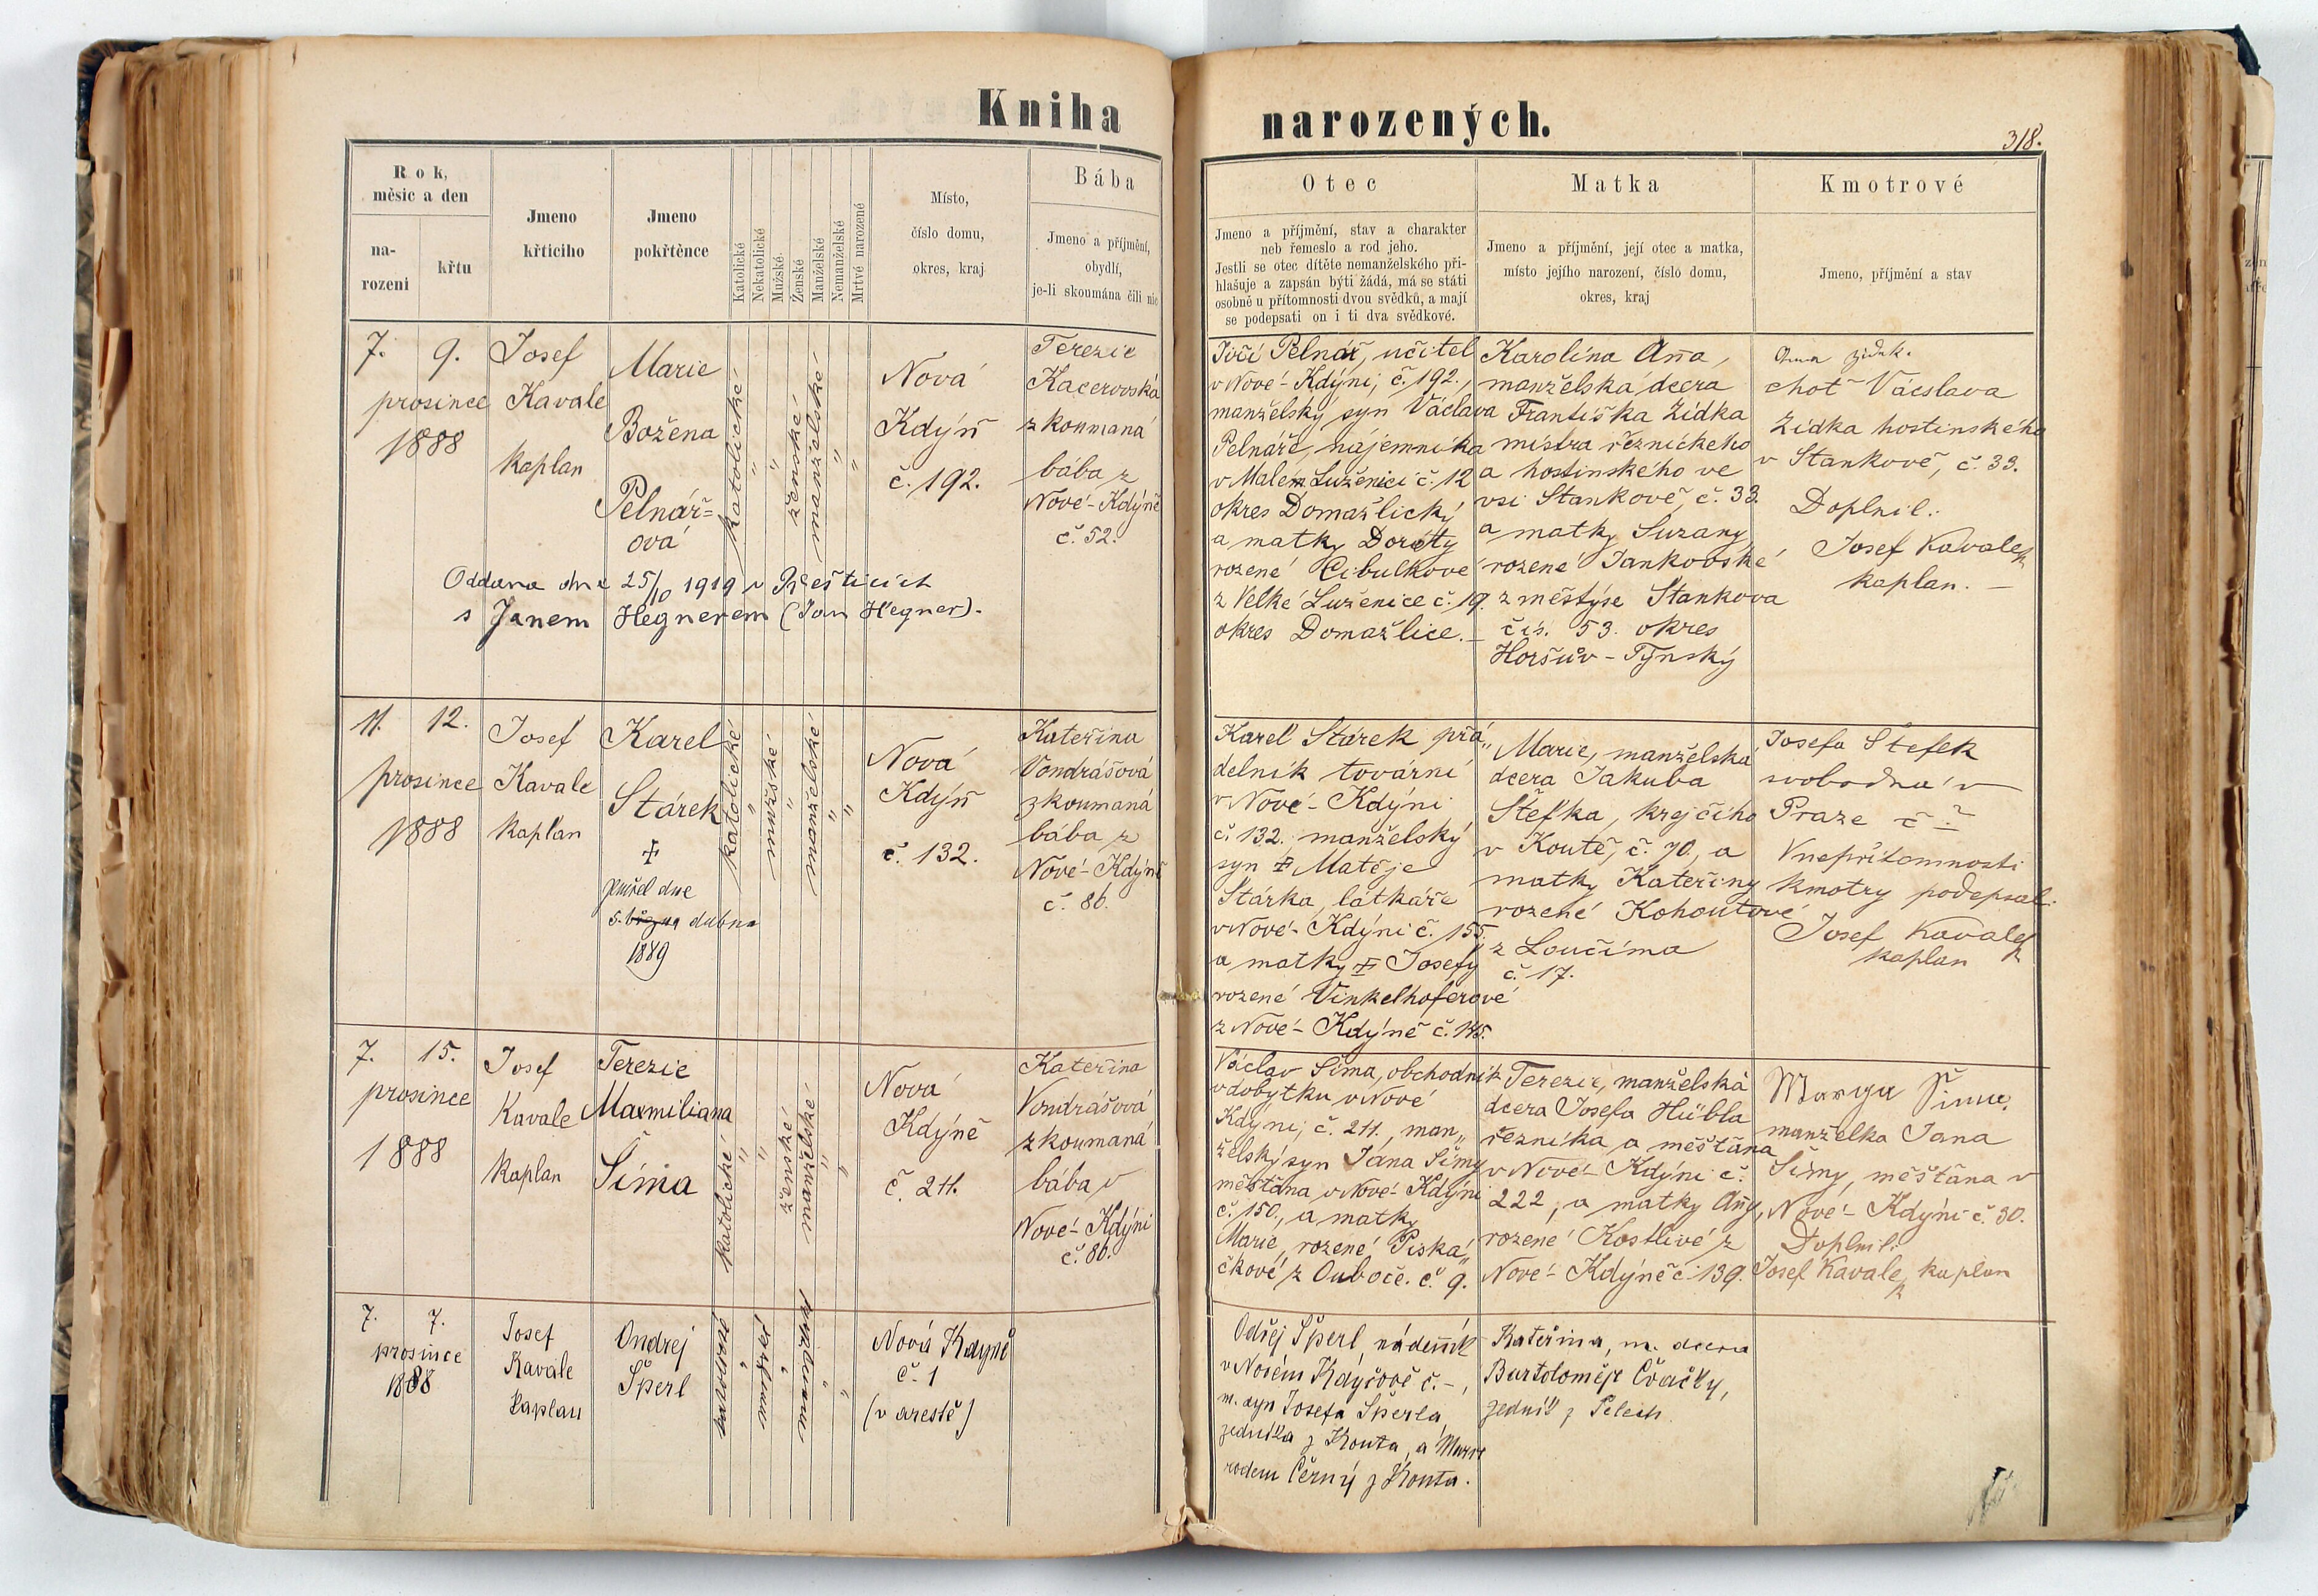 Kniha
Rok,
měsíc a den
na-
rozeni
křtu
Jmeno
křticího
Jmeno
pokřtěnce
Katolické
Nekatolické
Mužské
Ženské
Manželské
Nemanželské
Mrtvé narozené
Místo,
číslo domu,
okres, kraj
Bába
Jmeno a příjmění,
obydlí,
je-li skoumána čili nic
7. 9.
prosince
1888
Josef
Kavale
kaplan
Marie
Božena
Pelnář=
ová
katolické
"
"
ženské
manželské
"
"
Nová
Kdýň
č. 192.
Terezie
Kacerovská
zkoumaná
bába z
Nové-Kdýně
č. 52.
Oddána dne 25/10 1919 v Přešticích
s Janem Hegnerem (Jan Hegner).
11. 12.
prosince
1888
Josef
Kavale
kaplan
Karel
Stárek
+
zemřel dne
5. března dubna
1889
katolické
"
mužské
"
manželské
"
"
Nová
Kdýň
č. 132.
Kateřina
Vondrášová
zkoumaná
bába z
Nové-Kdýně
č. 86.
7. 15.
prosince
1888
Josef
Kavale
kaplan
Terezie
Maxmiliana
Šíma
katolické
"
"
ženské
manželské
"
"
Nová
Kdýně
č. 211.
Kateřina
Vondrášová
zkoumaná
bába v
Nové-Kdýni
č. 86.
7. 7.
prosince
1888
Josef
Kavale
kaplan
Ondrej
Šperl
katolické
"
mužské
"
manželské
"
"
Nová Kdyně
č. 1
(v arestě)
narozených.
318.
Otec
Jmeno a příjmění, stav a charakter
neb řemeslo a rod jeho.
Jestli se otec dítěte nemanželského při-
hlašuje a zapsán býti žádá, má se státi
osobně u přítomnosti dvou svědků, a mají
se podepsati on i ti dva svědkové.
Matka
Jmeno a příjmění, její otec a matka,
místo jejího narození, číslo domu,
okres, kraj
Kmotrové
Jmeno, příjmění a stav
Jiří Pelnář, učitel
v Nové-Kdýni, č. 192.,
manželský syn Václava
Pelnáře, nájemníka
v Malém Luženici č. 12
okres Domažlický
a matky Doroty
rozené Cibulkove
z Velké Luženice č. 19.
okres Domažlice.
Karolína Anna,
manželská dcera
Františka Zídka
mistra řeznického
a hostinského ve
vsi Stankově, č. 33.
a matky Suzany,
rozené Jankovské
z městýse Stankova
čís. 53. okres
Horšův-Týnský
Anna Zidek.
choť Václava
Zídka hostinského
v Stankově, č. 33.
Doplnil:
Josef Kavale
kaplan.
Karel Stárek přá„
delník tovární
v Nové-Kdýni
č. 132., manželský
syn + Matěje
Stárka, látkáře
v Nové-Kdýni č. 155.
a matky + Josefy
rozené Vinkelhoferové
z Nové-Kdýně č. 145.
Marie, manželská
dcera Jakuba
Štefka, krejčího
v Koutě, č. 70., a
matky Kateřiny
rozené Kohoutové
z Loučíma
č. 17.
Josefa Stefek
svobodná v
Praze č ?
V nepřítomnosti
kmotry podepsal:
Josef Kavale
kaplan
Václav Šíma, obchodník
v dobytku v Nové
Kdýni, č. 211., man„
želský syn Jana Šímy
měšťána v Nové-Kdýni
č. 150., a matky
Marie, rozené Piska„
čkové z Ouboče. č. 9.
Terezie, manželská
dcera Josefa Hübla
řezníka a měšťána
v Nové-Kdýni č.
222, a matky Anny,
rozené Kostlivé z
Nové-Kdýně č. 139.
manželka Jana
Šímy, měšťána v
Nové-Kdýni č. 30.
Doplnil:
Josef Kavale, kaplan
Ondřej Šperl, nádenník
v Novém Kdyčově č. -,
m. syn Josefa Šperla,
zedníka z Kouta, a Marie
rodem Černý z Kouta.
Kateřina, m. dcera
Bartoloměje
zedník z